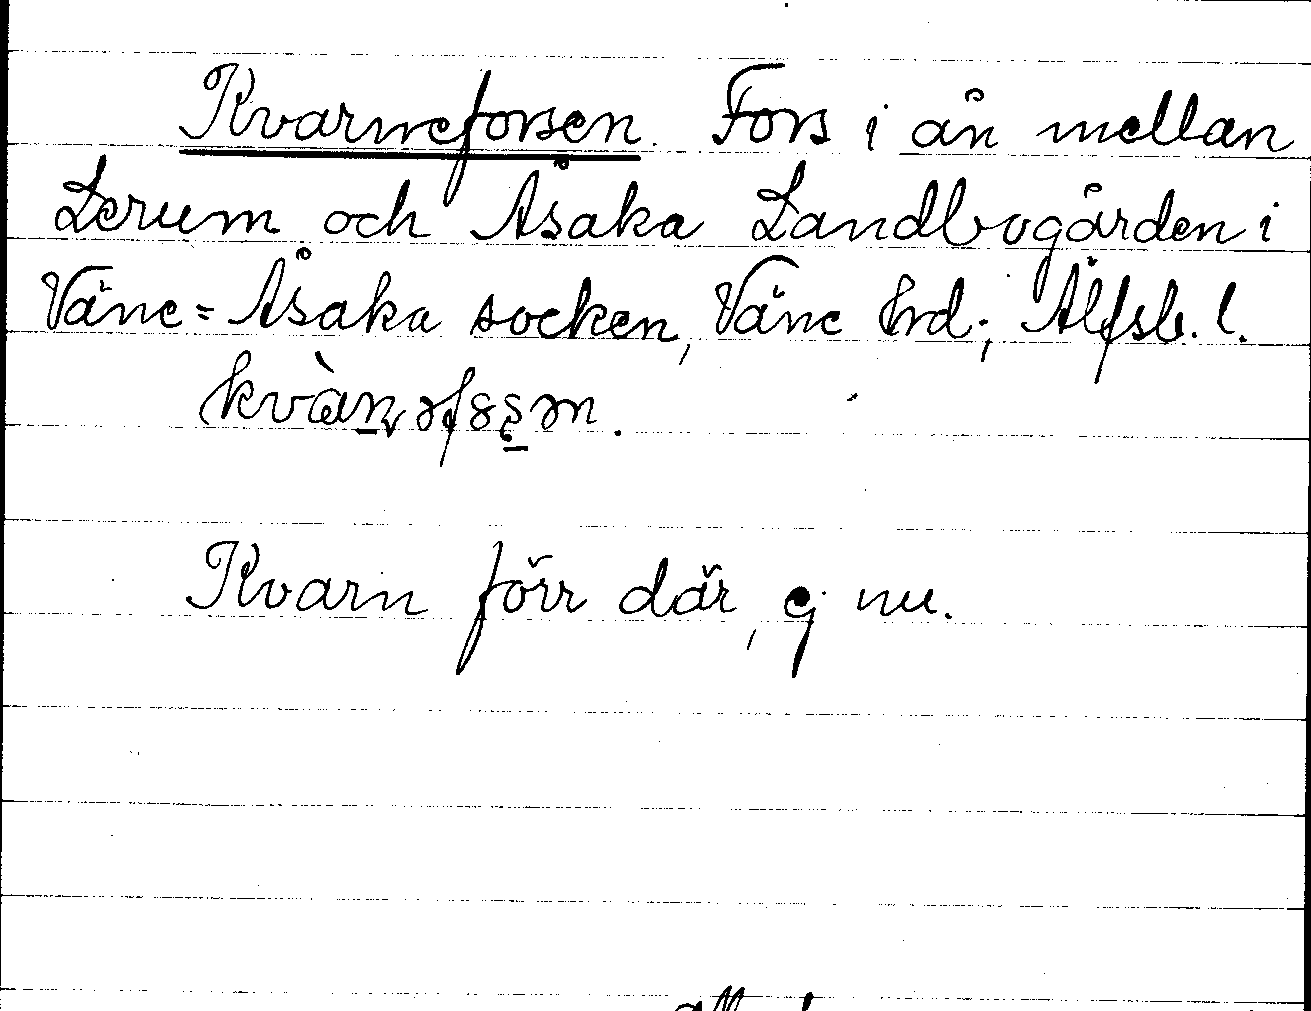 Kvarneforsen. Fors i ån mellan
Lerum och Åsaka Landbogården i
Väne=Åsaka socken, Väne hrd; Älfsb. l.
Kvarn förr där, ej nu.